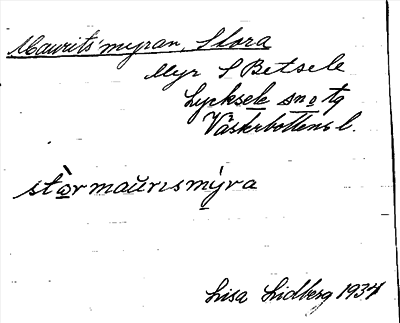 Maurits'myran, Stora
Myr S Betsele
Lycksele sn o tg
Västerbottens l.
stòrmaurısmýra
Lisa Lidberg 1934